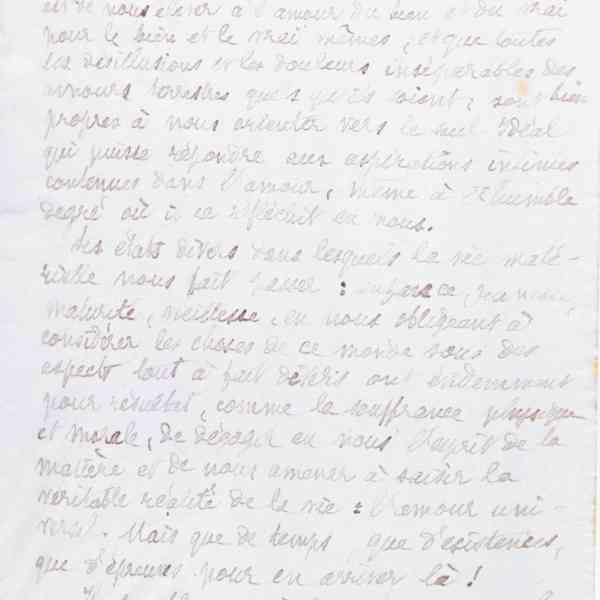 et de nous élever à l'amour du bien et du vrai
pour le bien et le vrai mêmes, et que toutes
les désillusions et les douleurs inséparables des
amours terrestres quels qu'ils soient, sont bien
propres à nous orienter vers le seul Idéal
qui puisse répondre aux aspirations intimes
contenues dans l'amour, même à l'humble
degré où il se réfléchit en nous.
Les états divers dans lesquels la vie maté-
rielle nous fait passer : enfance, jeunesse,
maturité, vieillesse, en nous obligeant à
considérer les choses de ce monde sous des
aspects tout à fait divers ont évidemment
pour résultat, comme la souffrance physique
et morale, de dégager en nous l'esprit de la
matière et de nous amener à saisir la
véritable réalité de la vie : l'amour uni-
versel. Mais que de temps, que d'existences,
que d'épreuves pour en arriver là !